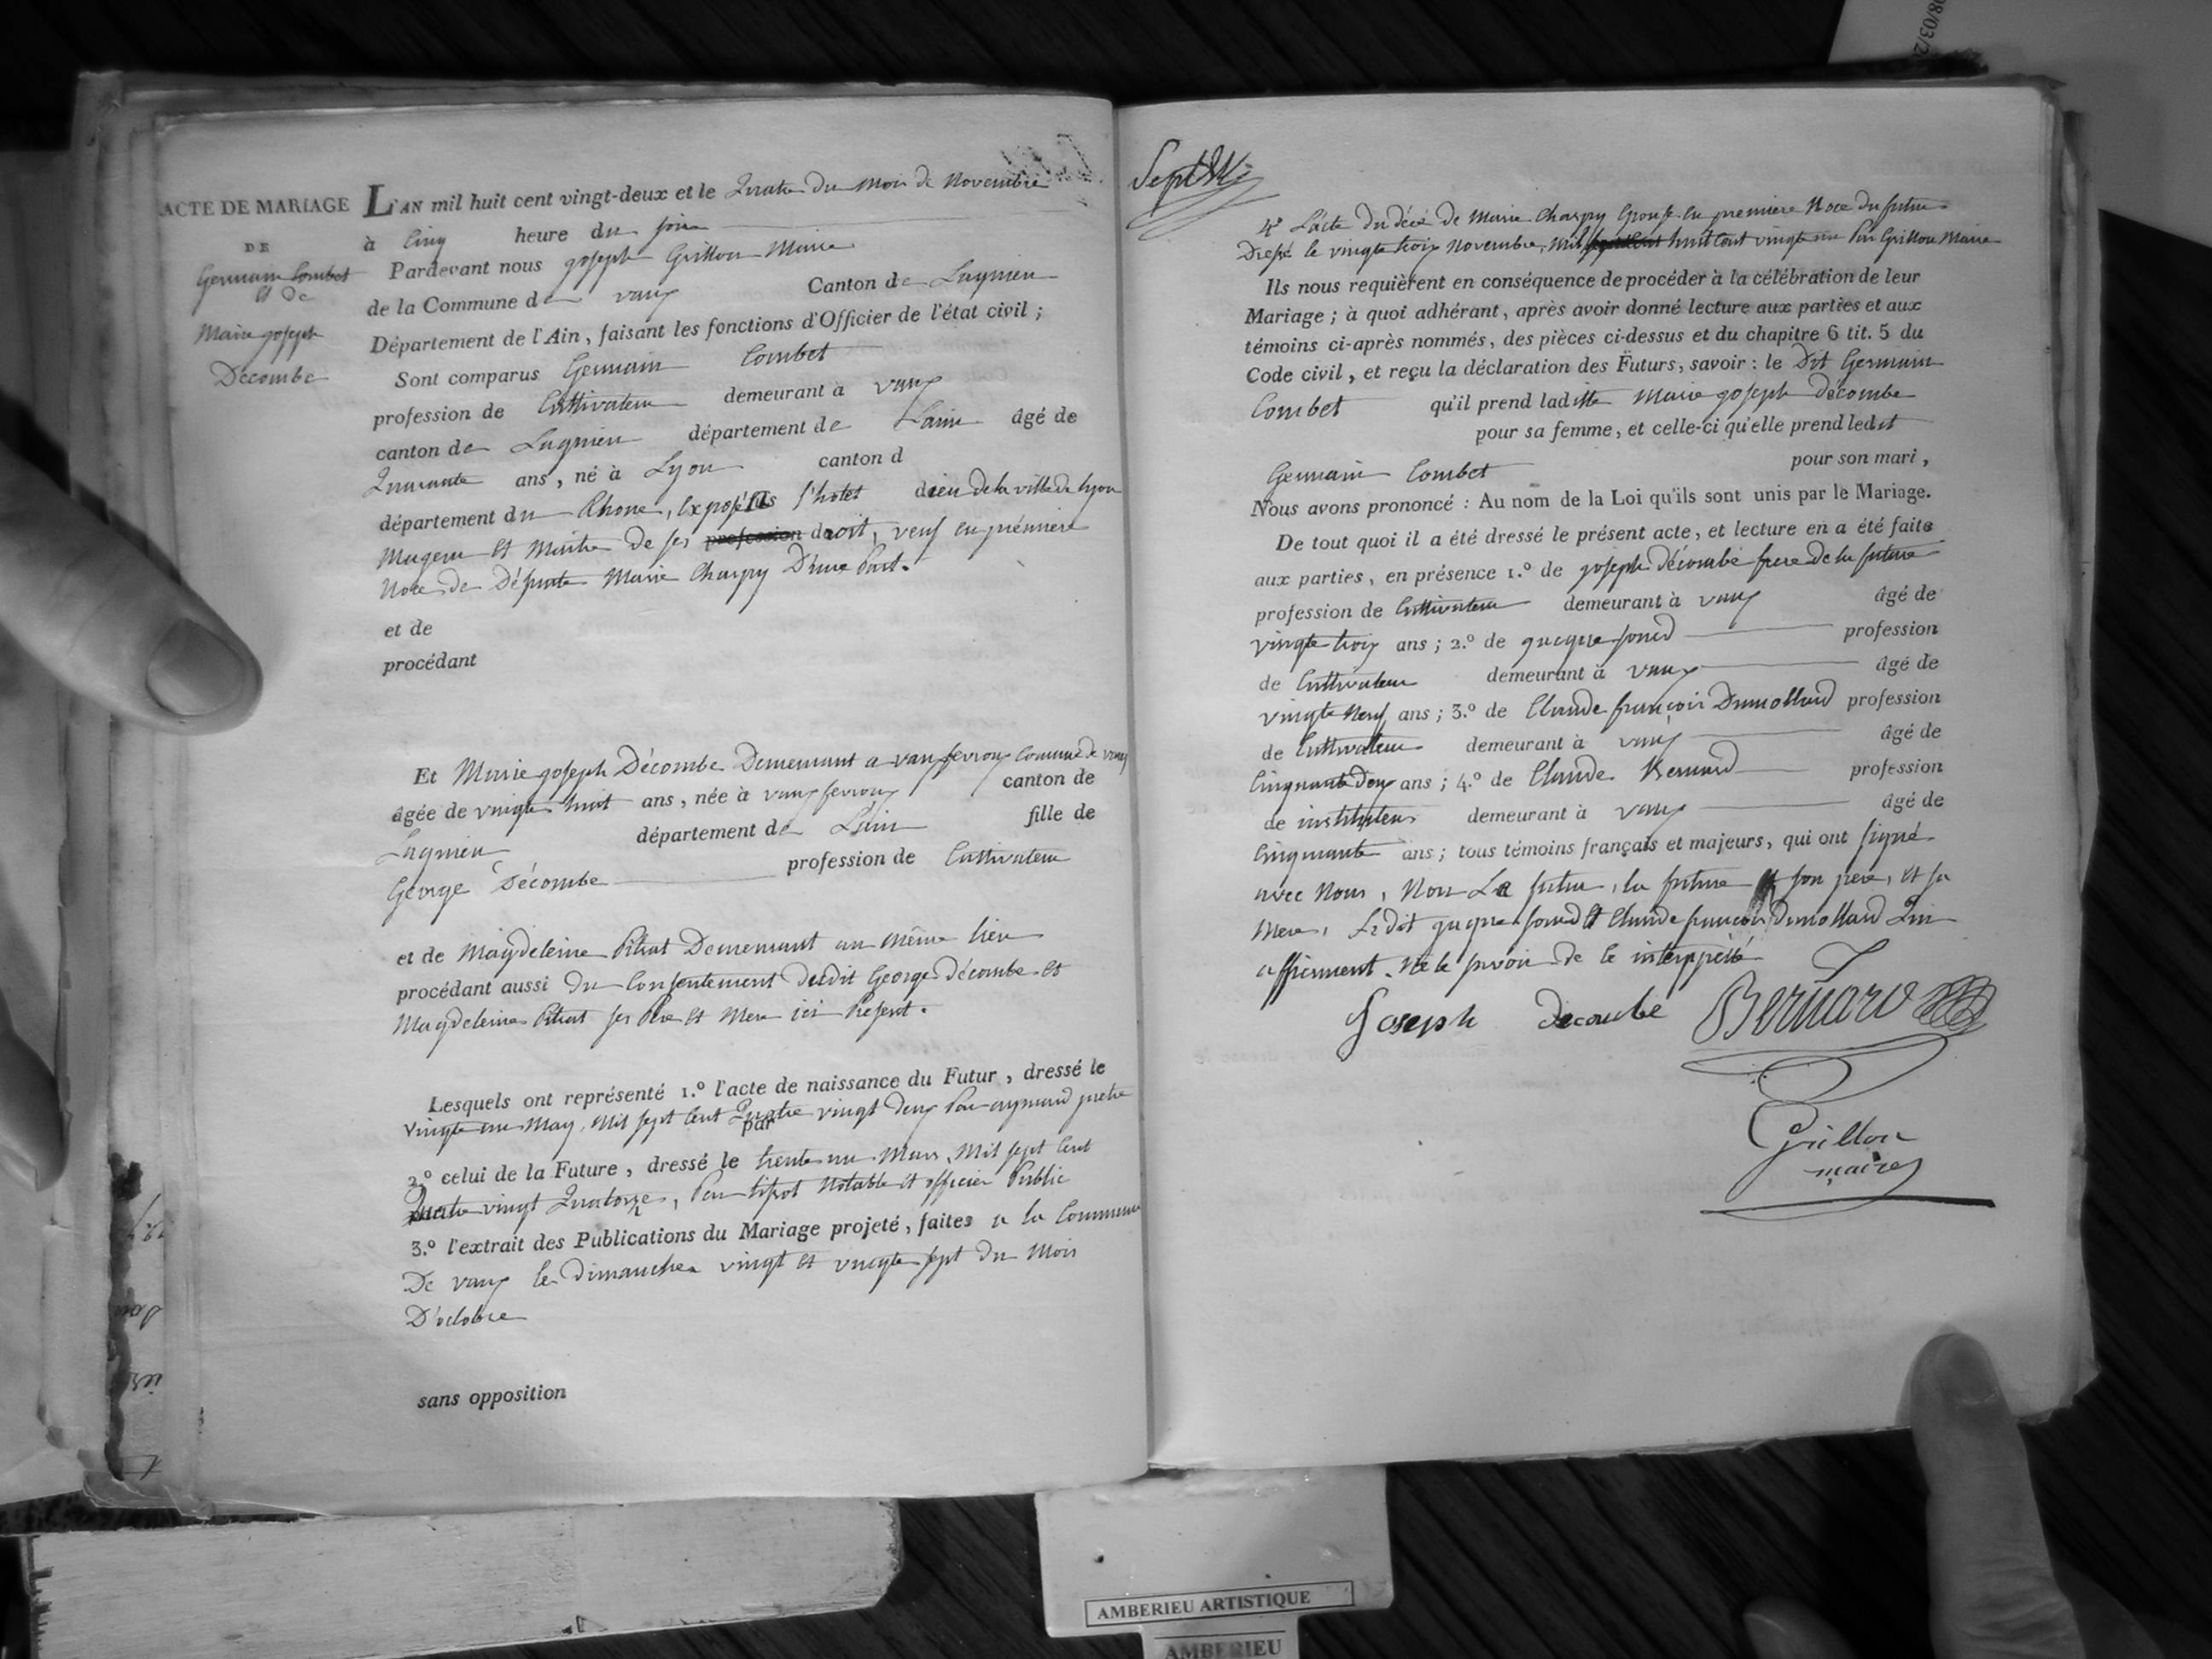 ACTE DE MARIAGE
DE
Germain Combet
et de
Marie joseph
Décombe
L'AN mil huit cent vingt-deux et le Quatre du Mois de Novembre
à Cinq heure du soire
Pardevant nous joseph Grillon Maire
de la Commune de vaux Canton de Lagnieu
Département de l'Ain, faisant les fonctions d'Officier de l'état civil ;
Sont comparus Germain Combet
profession de Cultivateur demeurant à vaux
canton de Lagnieu département de Lain âgé de
Quarante ans, né à Lyon canton d
département du Rhone, Exposé à l'hotel dieu de la ville de lyon
Mageur et Maitre de ses profession droit, veuf en première
Noce de Défunte Marie Charpy D'une Part.
et de
procédant
Et Marie joseph Décombe Demeurant a vaux fevroux Commune de vaux
âgée de vingte huit ans, née à vaux fevroux canton de
Lagnieu département de Lain fille de
George Décombe profession de Cultivateur
et de Magdeleine Pitrat Demeurant au même lieu
procédant aussi du Consentement dudit George Décombe et
Magdeleine Pitrat ses Père et Mere ici Présent.
Lesquels ont représenté 1.º l'acte de naissance du Futur, dressé le
vingte un May, mil sept Cent Quatre vingt deux Par aymard pretre
par
2.º celui de la Future, dressé le trente un Mars, Mil sept Cent
Quatre vingt Quatorze, Par Notable et officier Public
3.º l'extrait des Publications du Mariage projeté, faites a la Commune
De vaux les dimanches vingt et vingte sept du Mois
D'octobre
sans opposition
Sept
4º L'acte du décé de Marie Charpy Epouse en première Noce du futur
Dressé le vingte troix Novembre, Mil huit Cent vingte un Par Grillon Maire
Ils nous requièrent en conséquence de procéder à la célébration de leur
Mariage ; à quoi adhérant, après avoir donné lecture aux parties et aux
témoins ci-après nommés, des pièces ci-dessus et du chapitre 6 tit. 5 du
Code civil, et reçu la déclaration des Futurs, savoir : le Dit Germain
Combet qu'il prend laditte Marie joseph Décombe
pour sa femme, et celle-ci qu'elle prend ledit
Germain Combet pour son mari,
Nous avons prononcé : Au nom de la Loi qu'ils sont unis par le Mariage.
De tout quoi il a été dressé le présent acte, et lecture en a été faite
aux parties, en présence 1.º de joseph Décombe frere de la future
profession de Cultivateur demeurant à vaux âgé de
vingte troix ans ; 2.º de jacque profession
de Cultivateur demeurant à vaux âgé de
vingte Neuf ans ; 3.º de Claude françois Dumollard profession
de Cultivateur demeurant à vaux âgé de
Cinquante Deux ans ; 4.º de Claude Bernard profession
de instituteur demeurant à vaux âgé de
Cinquante ans ; tous témoins français et majeurs, qui ont signé
avec Nous, Non Le futur, la future et son pere, et sa
Mere, Ledit jacque et Claude françois Dumollard Qui
affirment Ne le savoir de ce interpellé
Joseph decombe Bernard
Grillon
maire
AMBERIEU ARTISTIQUE
AMBERIEU